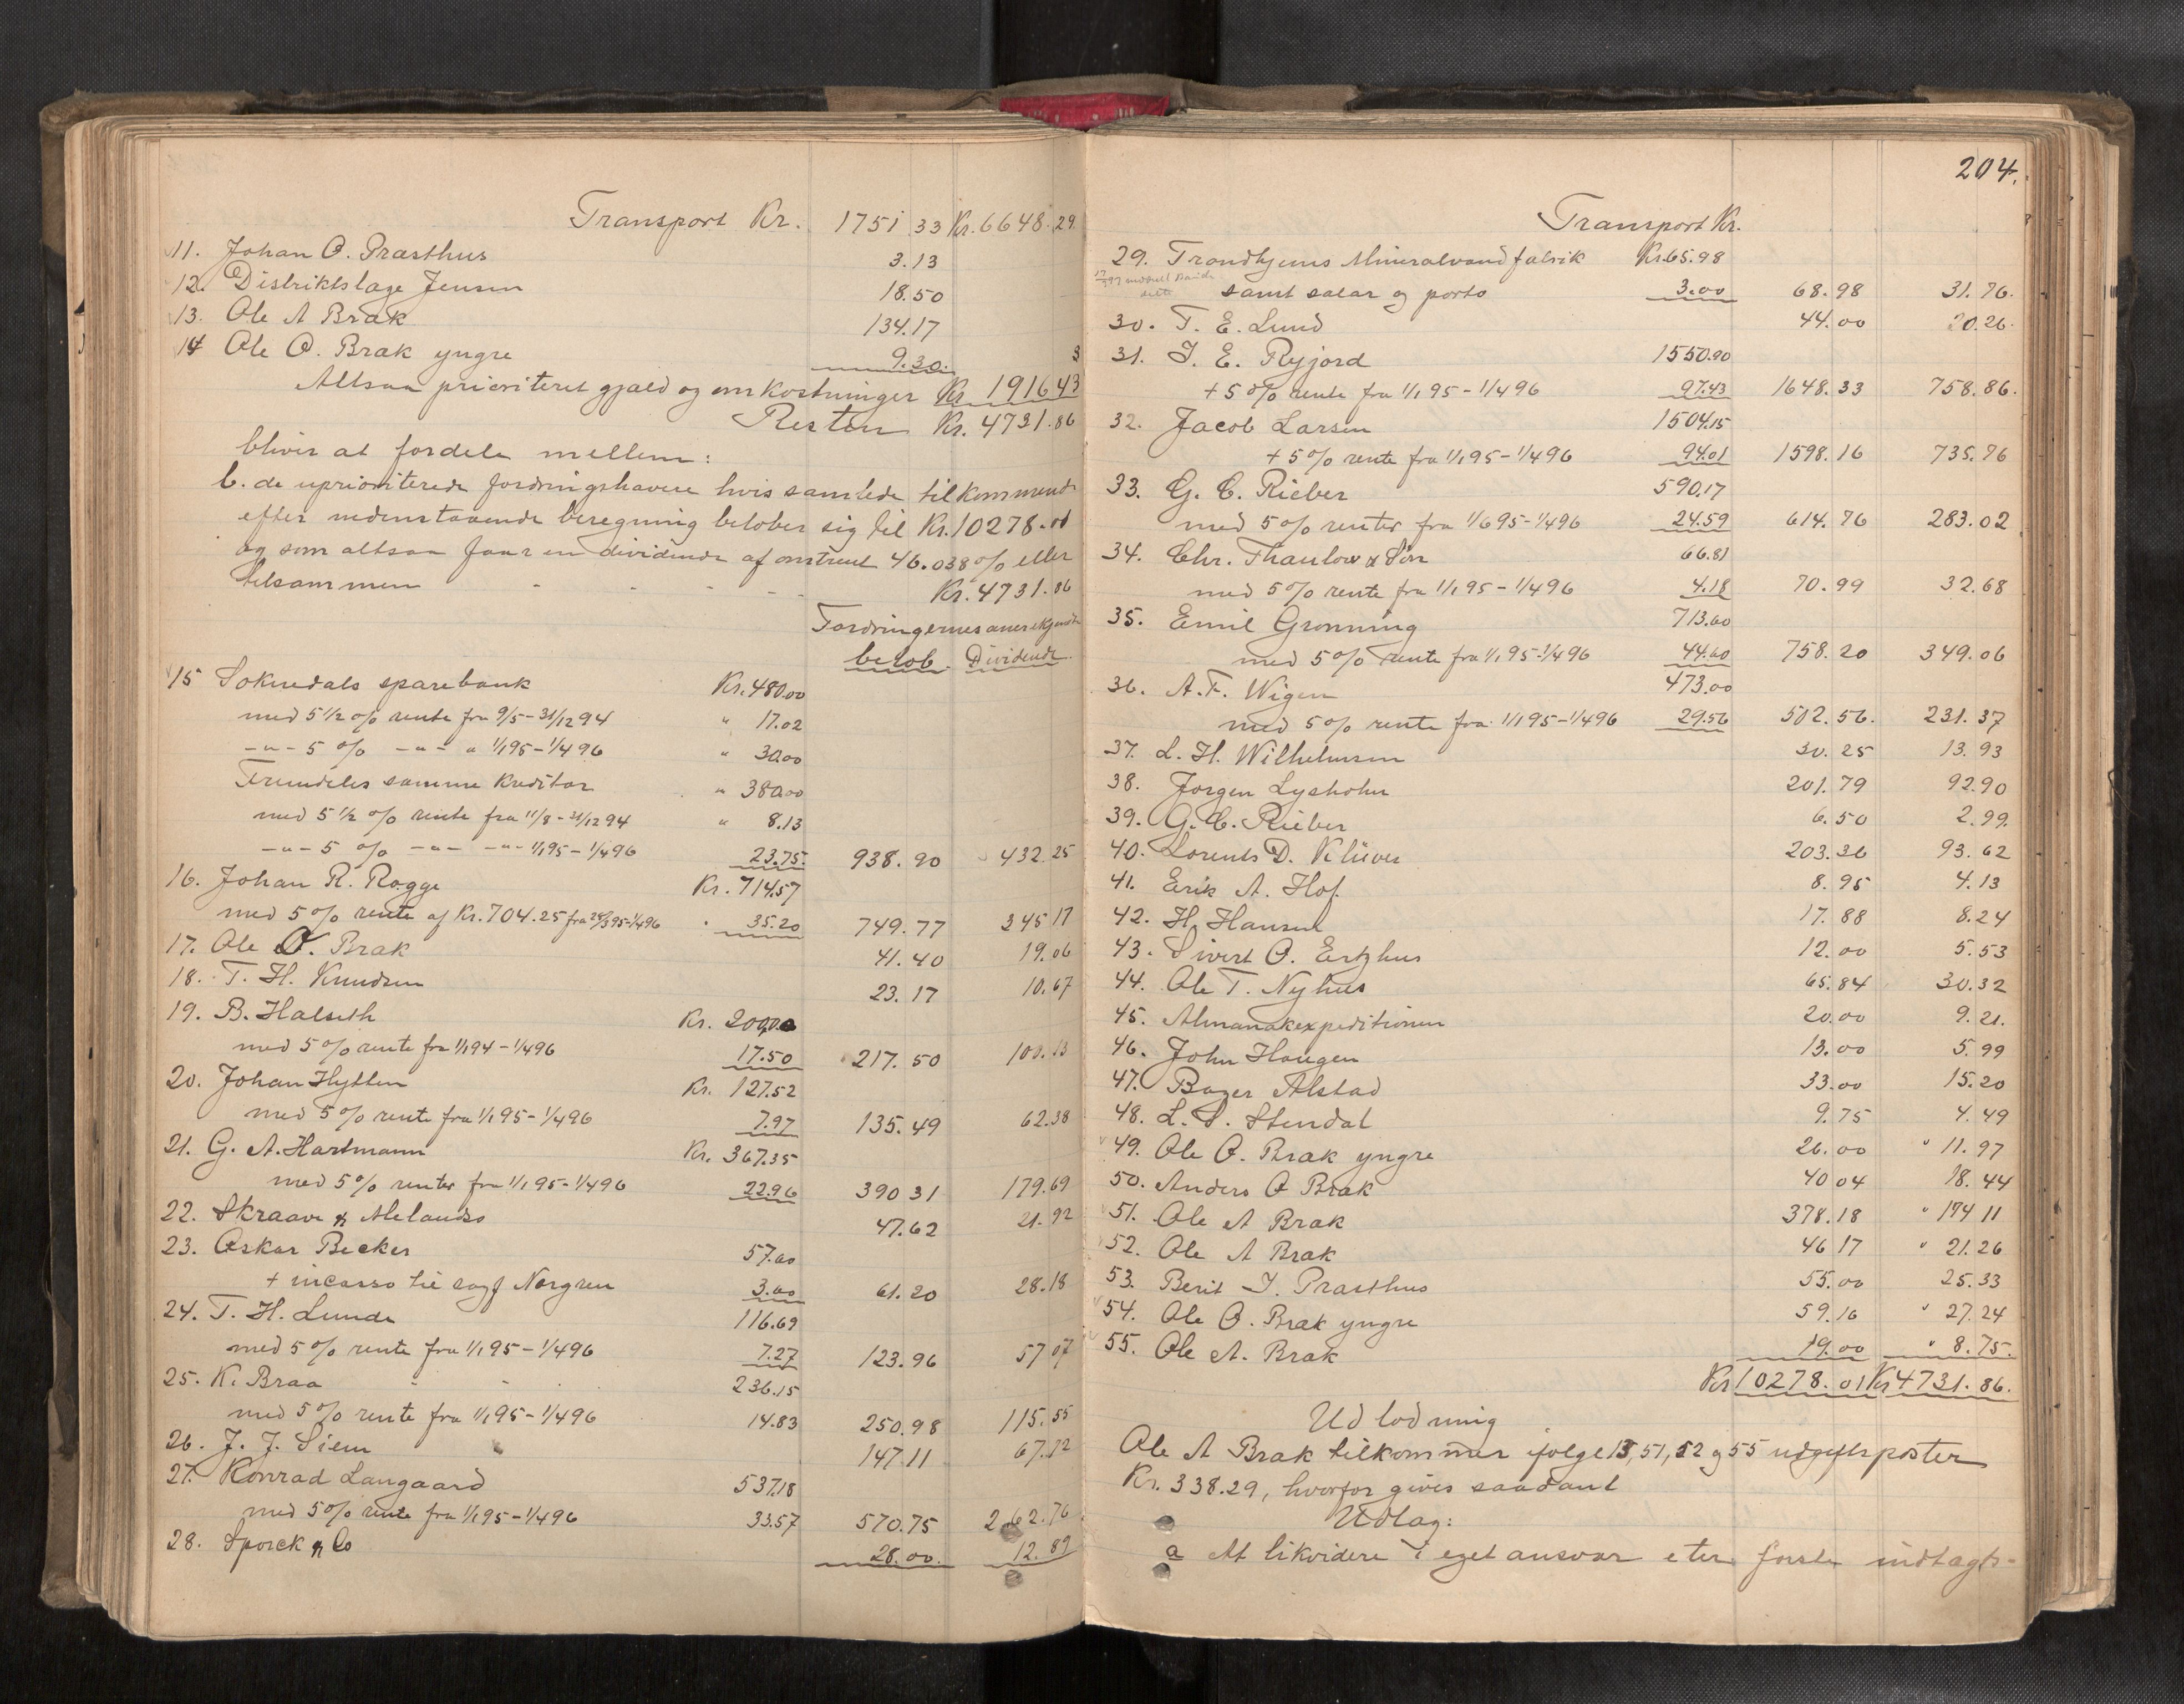 Transport Kr. 1751 33 Kr. 6648.29
11. Johan O. Præsthus 3.13
12. Distriktslæge Jensen 18.50
13. Ole A Bræk 134.17
14 Ole O. Bræk yngre 9.30.
Altsaa prioriteret gjæld og omkostninger Kr. 1916 43
Resten Kr. 4731.86
bliver at fordele mellem:
b. de uprioriterede fordringshavere hvis samlede tilkommende
efter nedenstaaende beregning beløber sig til Kr. 10278.01
og som altsaa faar en dividende af omtrent 46.038 % eller
tilsammen - - - - Kr. 4731.86
Fordringernes anerkjendte
beløb. Dividende.
15 Soknedals sparebank Kr. 480.00
med 5 1/2 % rente fra 9/5 - 31/12 94 " 17.02
-"- 5 % -"- " 1/1 95 - 1/4 96 " 30.00
Fremdeles samme Kreditor " 380.00
med 5 1/2 % rente fra 11/8 - 31/12 94 " 8.13
-"- 5 % -"- -"- 1/1 95 - 1/4 96 23.75. 938.90 432.25
16. Johan R. Rogge Kr. 714.57
med 5 % rente af Kr. 704.25 fra 28/3 95 - 1/4 96 " 35.20 749.77 345 17
17. Ole O. Bræk 41.40 19.06
18. T. H. Knudsen 23.17 10.67
19. B. Halseth Kr. 200.00
med 5 % rente fra 1/1 94 - 1/4 96 17.50 217.50 100.13
20. Johan Hytten Kr. 127.52
med 5 % rente fra 1/1 95 - 1/4 96 7.97 135.49 62.38
21. G. A. Hartmann Kr. 367.35
med 5 % renter fra 1/1 95 - 1/4 96 22.96 390 31 179.69
22. Skraave & Melandsø 47.62 21.92
23. Oskar Becker 57.60
+ incasso til sagf Norgren 3.60 61.20 28.18
24. T. H. Lunde 116.69
med 5 % rente fra 1/1 95 - 1/4 96 7.27 123.96 57 07
25. K. Braa - - 236.15
med 5 % rente fra 1/1 95 - 1/4 96 14.83 250.98 115.55
26. J. J. Siem 147.11 67.72
27. Konrad Langaard 537.18
med 5 % rente fra 1/1 95 - 1/4 96 33.57 570.75 262.76
28. Sporck & Co 28.00. 12.89
204.
Transport Kr.
29. Trondhjems Mineralvandfabrik Kr. 65.98
samt salær og porto 3.00 68.98 31.76.
30. T. E. Lund 44.00 20.26.
31. I. E. Ryjord 1550.90
+ 5 % rente fra 1/1 95 - 1/4 96 97.43 1648.33 758.86.
32. Jacob Larsen 1504.15
+ 5 % rente fra 1/1 95 - 1/4 96 94.01 1598.16 735.76
33. G. C. Rieber 590.17
med 5 % renter fra 1/6 95 - 1/4 96 24.59 614.76 283.02
34. Chr. Thaulow & Søn 66.81
med 5 % rente fra 1/1 95 - 1/4 96 4.18 70.99 32.68
35. Emil Grønning 713.60
med 5 % rente fra 1/1 95 - 1/4 96 44.60 758.20 349.06
36. A. F. Wigen 473.00
med 5 % rente fra 1/1 95 - 1/4 96 29.56 502.56. 231.37
37. L. H. Wilhelmsen 30.25 13.93
38. Jørgen Lysholm 201.79 92.90
39. G. C. Rieber 6.50 2.99.
40. Lorents D. Klüver 203.36 93.62
41. Erik A. Hof. 8.95 4.13
42. H. Hansen 17.88 8.24
43. Sivert O. Ertzhus 12.00 5.53
44. Ole T. Nyhus 65.84 30.32
45. Almanakexpeditionen 20.00 9.21.
46. John Haugen 13.00 5.99
47. Bager Alstad 33.00 15.20
48. L. S. Stendal 9.75 4.49
49. Ole O. Bræk yngre 26.00 " 11.97
50. Anders O Bræk 40 04 18.44
51. Ole A Bræk 378.18 " 174 11
52. Ole A Bræk 46 17 " 21.26
53. Berit I. Præsthus 55.00 25.33
54. Ole O. Bræk yngre 59.16 " 27.24
55. Ole A. Bræk 19.00 " 8.75.
Kr 10278.01 Kr 4731.86.
Udlodning
Ole A Bræk tilkommer ifølge 13, 51, 52 og 55 udgiftsposter
Kr. 338.29, hvorfor gives saadant
Udlæg:
a At likvidere i eget ansvar efter første indtægts-